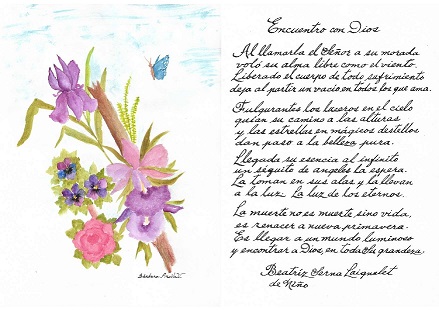 Encuentro con Dios
Al llamarla el Señor a su morada
voló su alma libre como el viento.
Liberado el cuerpo de todo sufrimiento
deja al partir un vacío en todos los que ama.
Fulgurantes los luceros en el cielo
guían su camino a las alturas
y las estrellas en mágicos destellos
dan paso a la belleza pura.
Llegada su esencia al infinito
un séquito de angeles la espera.
La toman en sus alas y la llevan
a la luz. La luz de los eternos.
La muerte no es muerte, sino vida,
es renacer a nueva primavera.
Es llegar a un mundo luminoso
y encontrar a Dios, en toda su grandeza.
Beatriz Serna
de Niño
Barbara